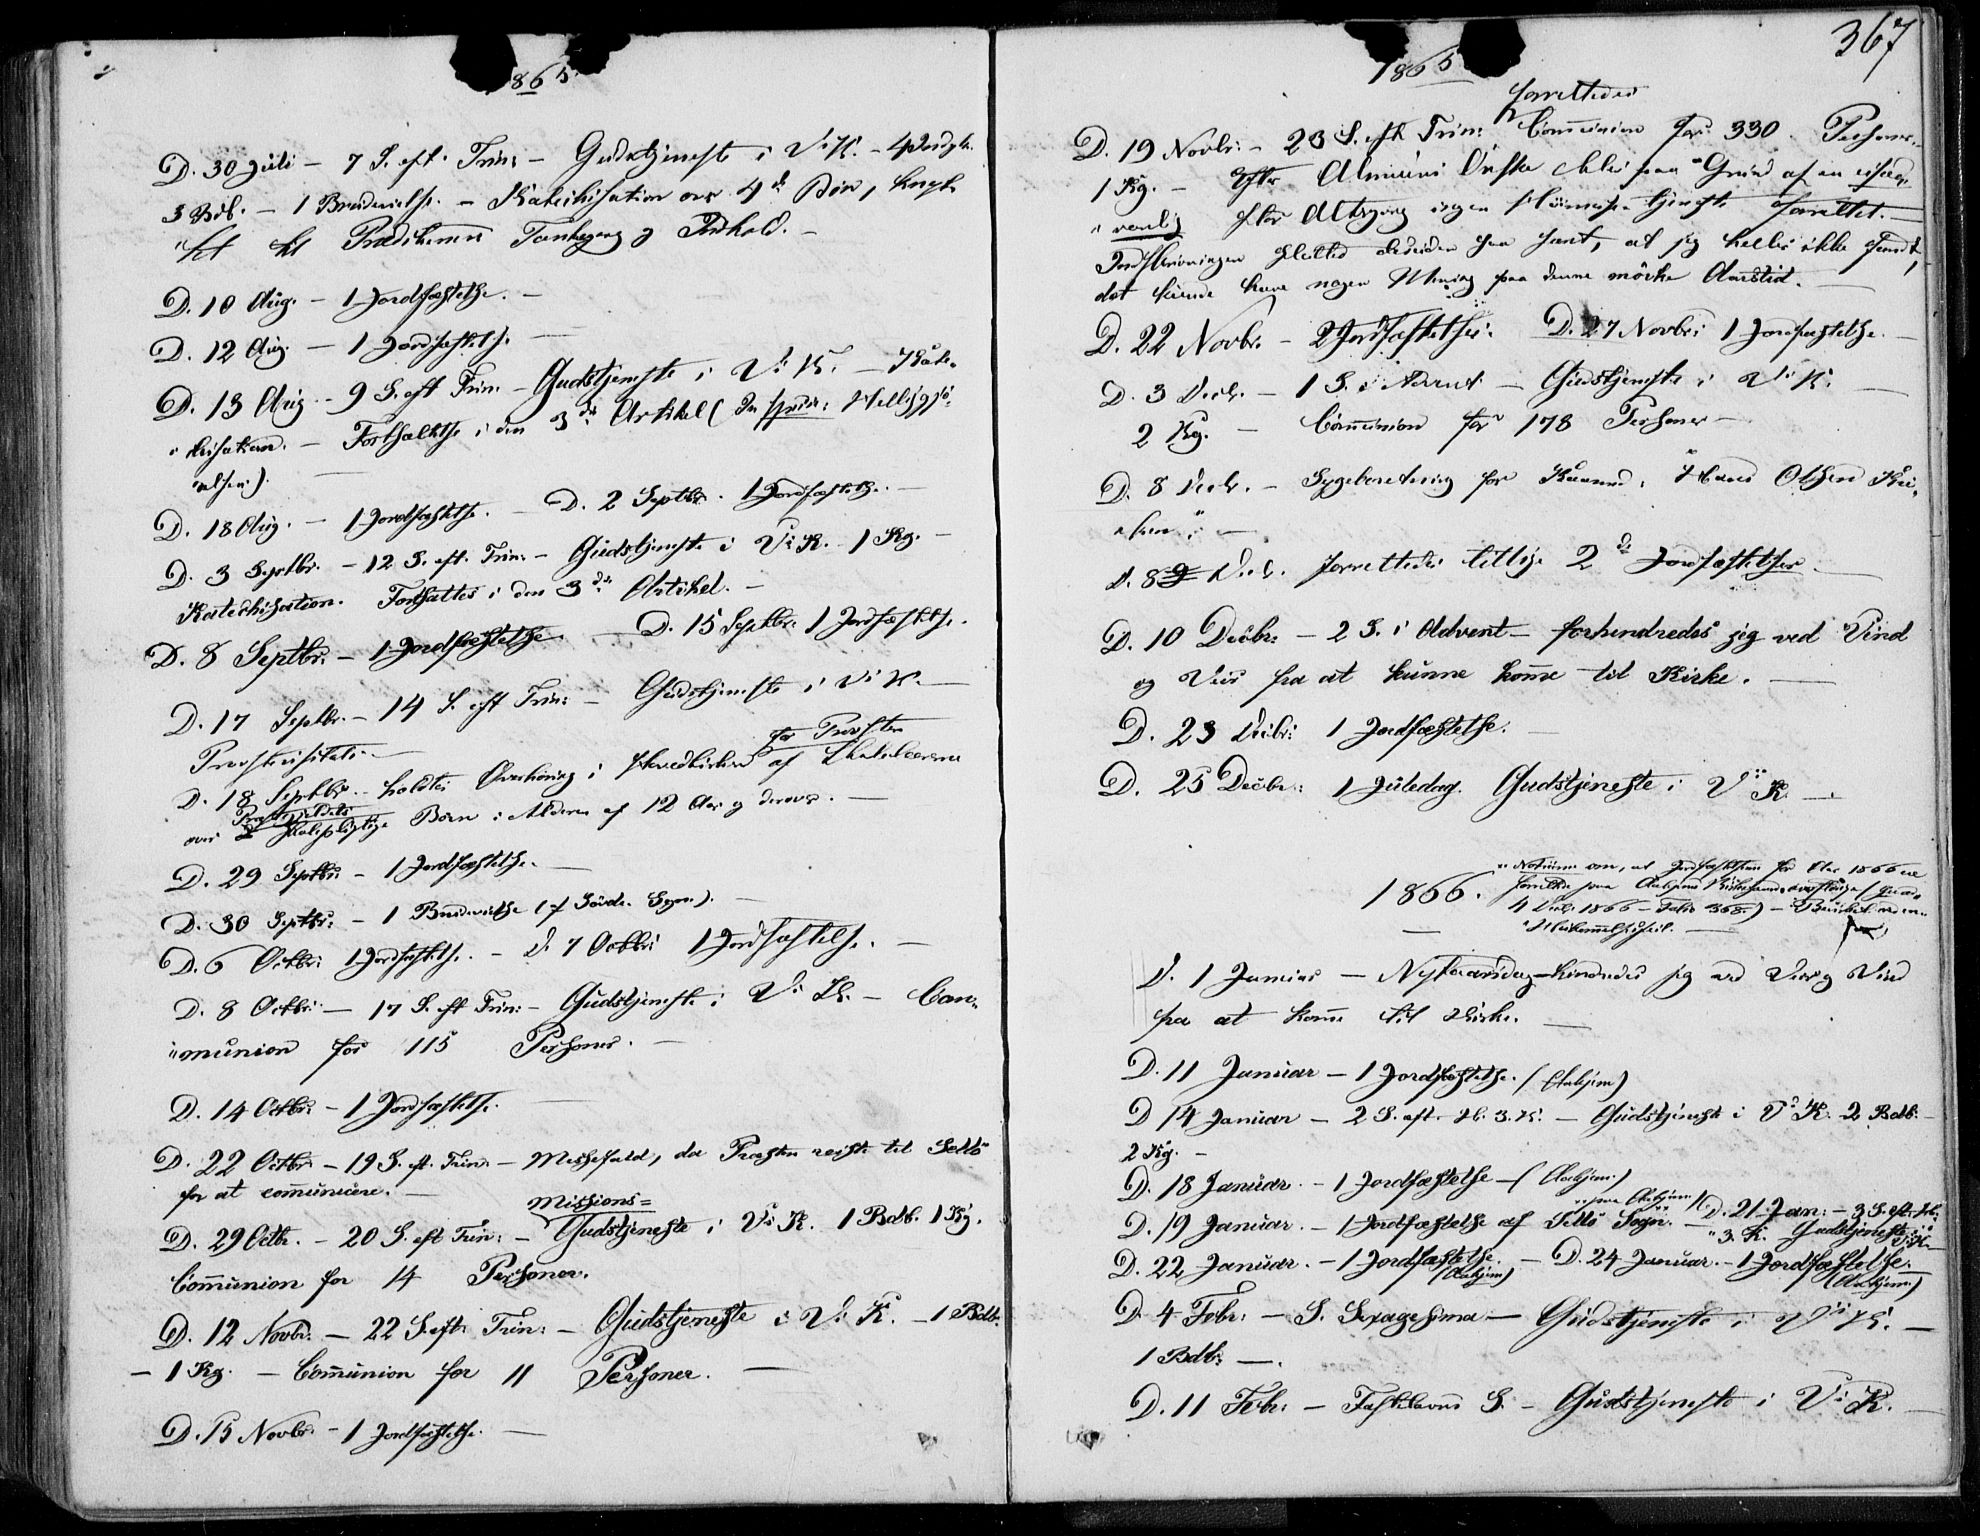 1865
D. 30 Juli – 7 S. eft. Trin: – Gudstjeneste i V: K. –
3 Bdb. – 1 Brudevielse. – Katechisation over 4de Bøn,
til Prædikenens Tankegang og Indhold. –
D. 10 Aug. – 1 Jordfæstelse. –
D. 12 Aug. – 1 Jordfæstelse
D. 13 Aug – 9 S. eft Trin: – Gudstjeneste i V: K. – Kate-
"chisation. – Fortsættelse i den 3die Artikel (
"relsen).
D. 18 Aug. – 1 Jordfæstelse. – D. 2 Septbr. 1 Jordfæstelse. –
D. 3 Septbr. – 12 S. eft. Trin: – Gudstjeneste i V: K. 1 Kg. –
Katechisation. Fortsattes i den 3die Artikel. –
D. 8 Septbr. – 1 Jordfæstelse – D. 15 Septbr: 1 Jordfæstelse.
D. 17 Septbr. – 14 S. eft Trin: – Gudstjeneste i V: K. –
Provstevisitats. –
for Provsten
D. 18 Septbr. – holdtes Overhøring i Hovedkirken af Skolelærerne
Præstegjeldets
over skolepligtige Børn i Alderen af 12 Aar og derover. –
D. 29 Septbr: – 1 Jordfæstelse. –
D. 30 Septbr: – 1 Brudevielse (af Søvde Sogn). –
D. 6 Octbr: 1 Jordfæstelse. – D. 7 Octbr: 1 Jordfæstelse. –
D. 8 Octbr: – 17 S. eft Trin: – Gudstjeneste i V: K. – Com-
"munion for 115 Personer. –
D. 14 Octbr: – 1 Jordfæstelse.
D. 22 Octbr – 19 S. ef. Trin: – Messefald, da Præsten reiste til
for at communicere. –
Missions=
D. 29 Octbr. – 20 S. eft Trin: – Gudstjeneste i V: K. 1 Bdb. 1 Kg.
Communion for 14 Personer.
D. 12 Novbr: – 22 S. eft: Trin: – Gudstjeneste i V: K. – 1 Bdb.
– 1 Kg. – Communion for 11 Personer. –
D. 15 Novbr. – 1 Jordfæstelse. –
367
1865
forrettedes
D. 19 Novbr: – 23 S. eft Trin: Communion for 330 Personer. –
1 Kg. – Efter blev paa Grund af en usæd-
"vanlig stor Altergang ingen forrettet. –
Indskrivningen slutted desuden saa sent, at jeg heller ikke fandt,
det kunde have nogen Mening paa denne mørke Aarstid. –
D. 22 Novbr. – 2 Jordfæstelser: D. 27 Novbr: 1 Jordfæstelse. –
D. 3 Decbr. – 1 S. i Advent – Gudstjeneste i V: K. –
2 Kg. – Communion for 178 Personer –
D. 8 Decbr. – Sygeberetning for Hans Olsen
D. 8 Decbr. forrettedes tillige 2de Jordfæstelser –
D. 10 Decbr: – 2 S. i Advent – forhindredes jeg ved Vind
og Veir fra at kunne komme til Kirke. –
D. 23 Decbr: 1 Jordfæstelse.
D. 25 Decbr: 1 Juledag. Gudstjeneste i V: K. –
1866.
om, at Jordfæstelsen for Aar 1866 er
forrettede paa
4 Decbr. 1866 – Folio 368.) –
D. 1 Januar – Nytaarsdag – hindredes jeg ved Veir og Vind
fra at komme til Kirke. –
D. 11 Januar – 1 Jordfæstelse. (Aahjem)
D 14 Januar – 2 S. eft. H. 3. K. – Gudstjeneste i V: K. 2 Bdb. –
2 Kg. –
D. 18 Januar – 1 Jordfæstelse – (Aahjem)
paa Aahjem
D. 19 Januar. – 1 Jordfæstelse af Sogn. – D. 21 Jan: – 3 S. eft. H.
"3. K. Gudstjeneste i V: K. –
D. 22 Januar. – 1 Jordfæstelse. – D. 24 Januar. – 1 Jordfæstelse.
(Aahjem) (Aahjem.)
D. 4 Febr: – S. Sexagesima – Gudstjeneste i V: K. –
1 Bdb: –.
D. 11 Febr: – Fastelavns S. – Gudstjeneste i V: K. –